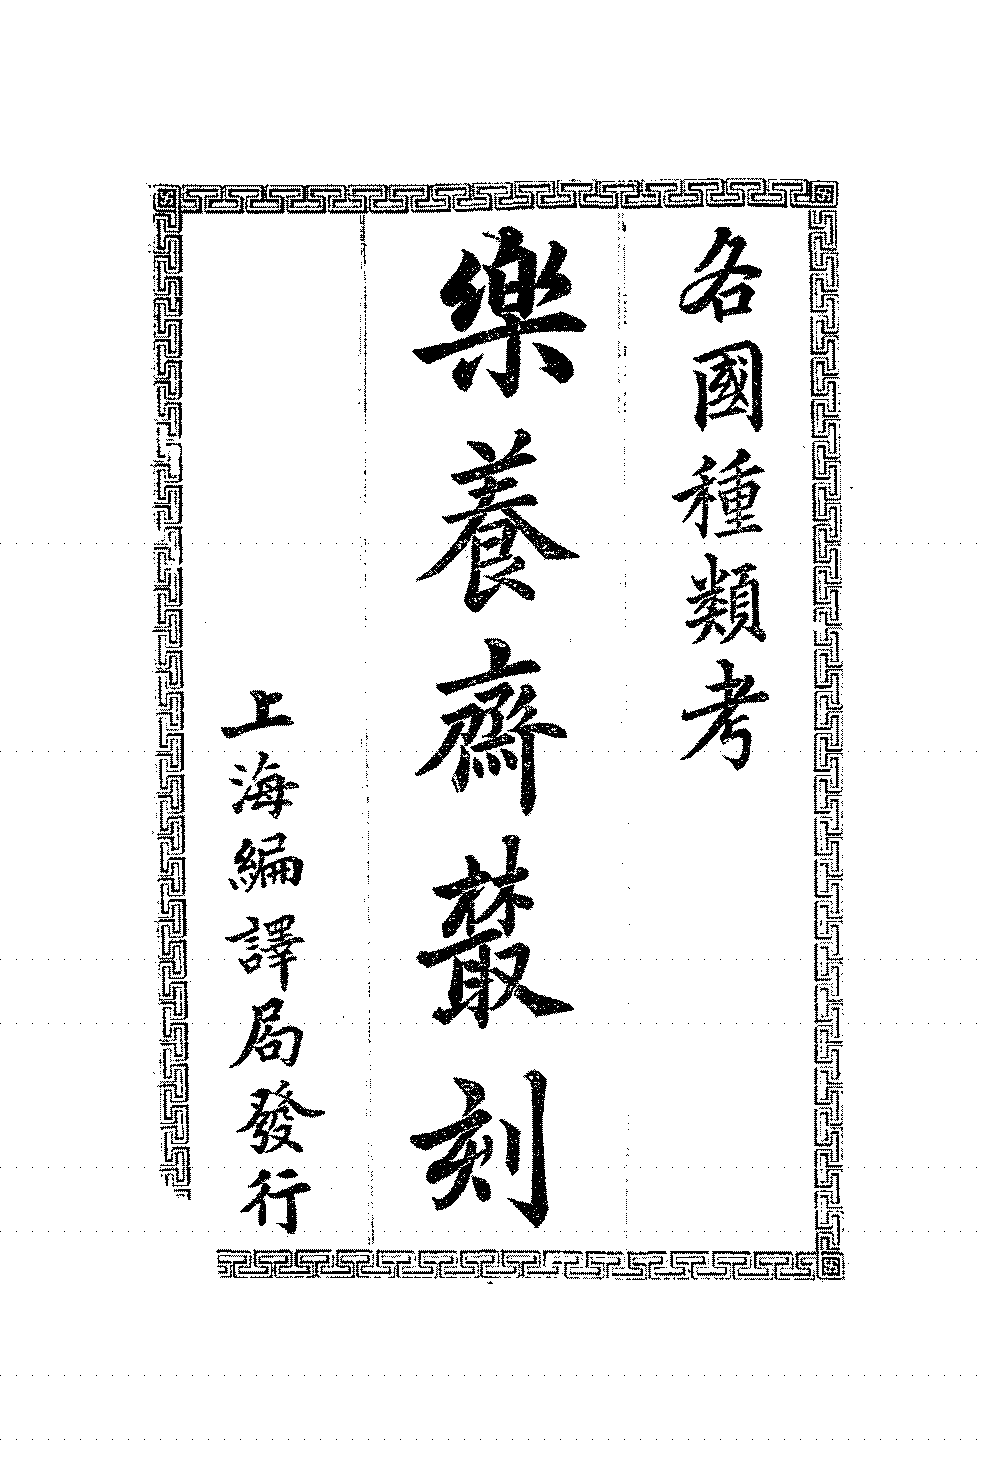 各國種類考
樂養齋叢刻
上海編譯局發行